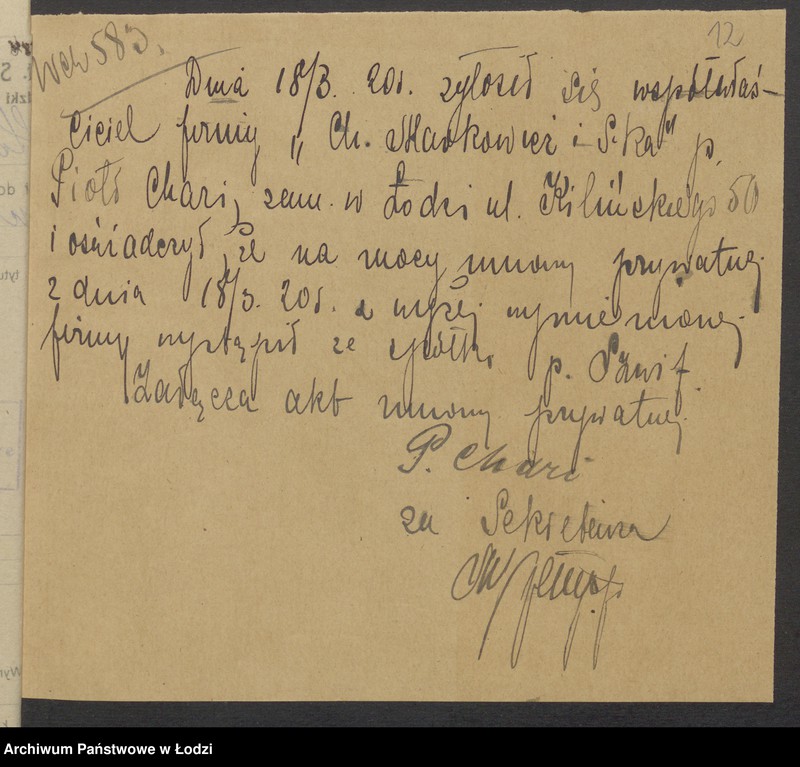 Wch 583.
12
Dnia 18/3. 20r. zgłosił się współwłaś-
ciciel firmy „Ch. Markowicz i S-ka" p.
Piotr Chari, zam. w Łodzi ul. Kilińskiego 50
i oświadczył, że na mocy umowy prywatnej
z dnia 18/3. 20r. z wyżej wymienionej
firmy wystąpił ze spółki p. Szwif.
Załącza akt umowy prywatnej.
P. Chari
za Sekretarza
Archiwum Państwowe w Łodzi